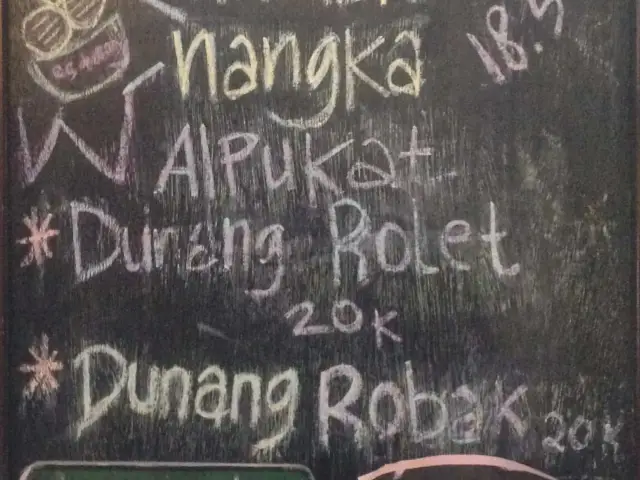 nangka
18.5
Alpukat
* Durang Rolet
20K
* Dunang Robak 20K